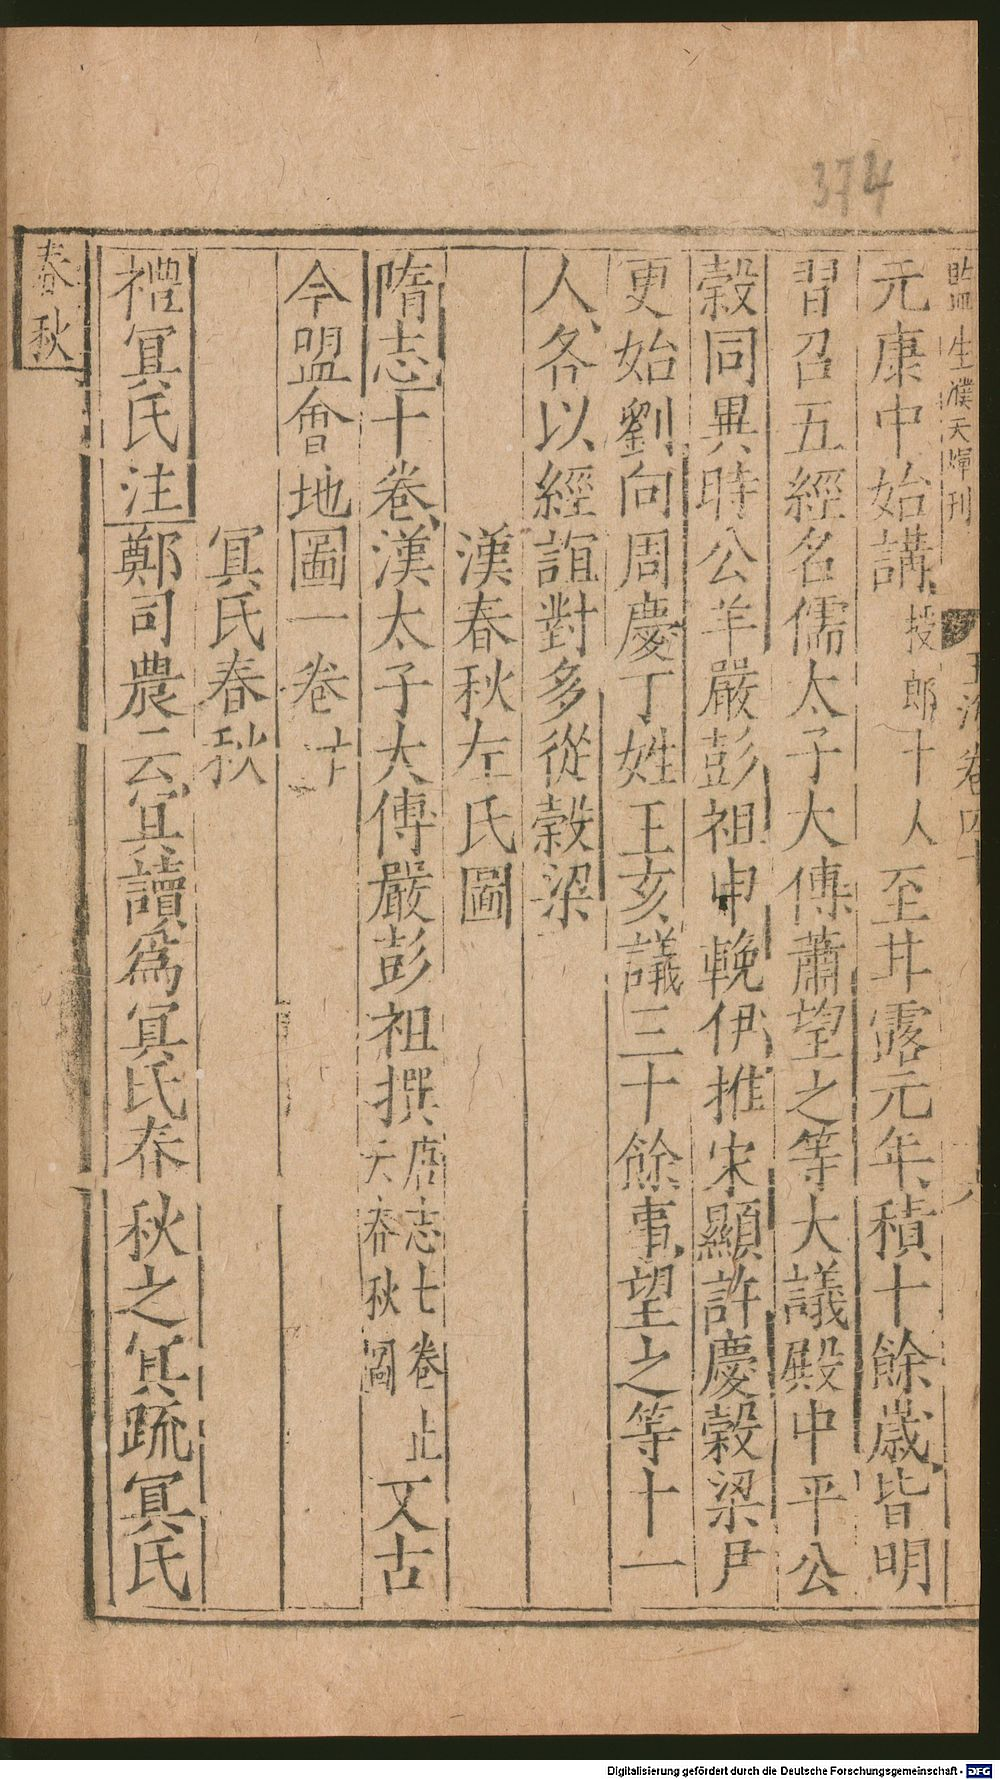 374
監生濮天㷡刊
玉海卷四十
元康中始講授郎十人至甘露元年積十餘歲皆明
習召五經名儒太子大傅蕭望之等大議殿中平公
穀同異時公羊嚴彭祖申輓伊推宋顯許慶穀梁尹
更始劉向周慶丁姓王亥議三十餘事望之等十一
人各以經誼對多從穀梁
漢春秋左氏圖
隋志十卷漢太子太傅嚴彭祖撰唐志七卷止天春秋圖又古
今盟會地圖一卷
冥氏春秋
禮冥氏注鄭司農云冥讀爲冥氏春秋之冥疏冥氏
春秋
Digitalisierung gefördert durch die Deutsche Forschungsgemeinschaft - DFG